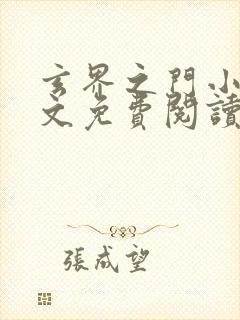 玄界之門小
文免費閱讀
張成望